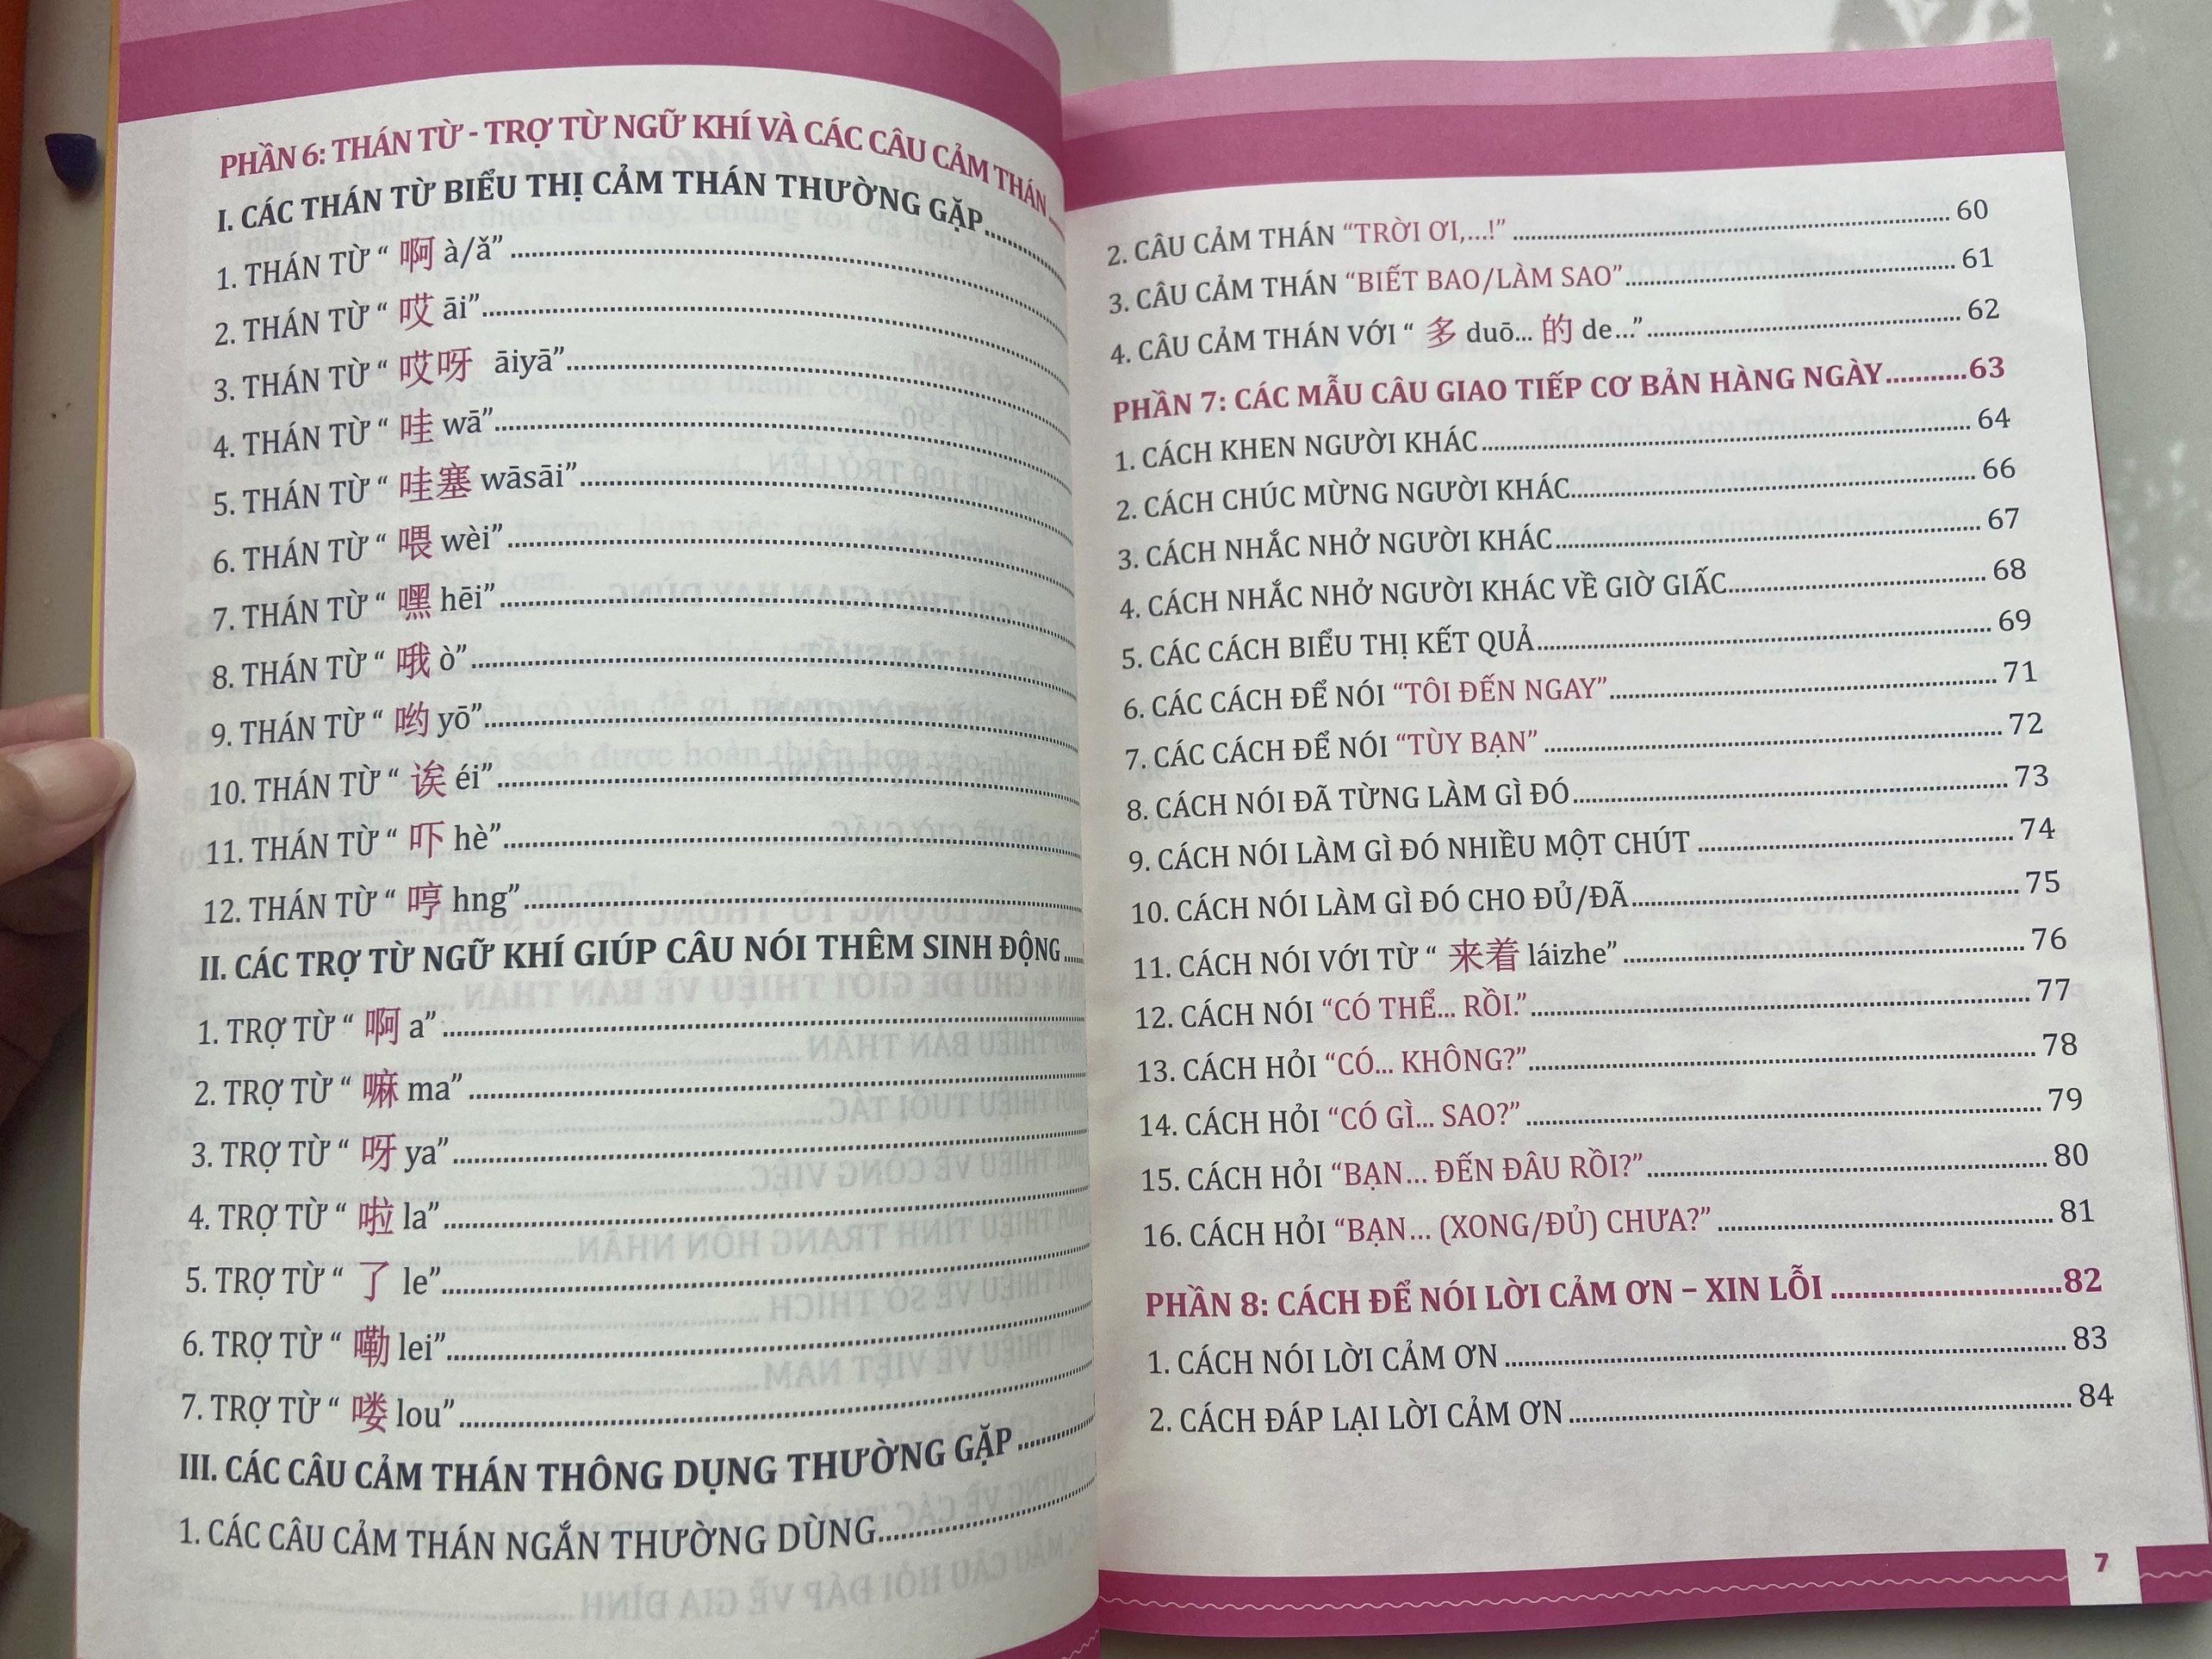 PHẦN 6: THÁN TỪ - TRỢ TỪ NGỮ KHÍ VÀ CÁC CÂU CẢM THÁN
I. CÁC THÁN TỪ BIỂU THỊ CẢM THÁN THƯỜNG GẶP
1. THÁN TỪ “ 啊 à/ǎ”
2. THÁN TỪ “ 哎 āi”
3. THÁN TỪ “ 哎呀 āiyā”
4. THÁN TỪ “ 哇 wā”
5. THÁN TỪ “ 哇塞 wāsāi”
6. THÁN TỪ “ 喂 wèi”
7. THÁN TỪ “ 嘿 hēi”
8. THÁN TỪ “ 哦 ò”
9. THÁN TỪ “ 哟 yō”
10. THÁN TỪ “ 诶 éi”
11. THÁN TỪ “ 吓 hè”
12. THÁN TỪ “ 哼 hng”
II. CÁC TRỢ TỪ NGỮ KHÍ GIÚP CÂU NÓI THÊM SINH ĐỘNG
1. TRỢ TỪ “ 啊 a”
2. TRỢ TỪ “ 嘛 ma”
3. TRỢ TỪ “ 呀 ya”
4. TRỢ TỪ “ 啦 la”
5. TRỢ TỪ “ 了 le”
6. TRỢ TỪ “ 嘞 lei”
7. TRỢ TỪ “ 喽 lou”
III. CÁC CÂU CẢM THÁN THÔNG DỤNG THƯỜNG GẶP
1. CÁC CÂU CẢM THÁN NGẮN THƯỜNG DÙNG
2. CÂU CẢM THÁN “TRỜI ƠI,...!” 60
3. CÂU CẢM THÁN “BIẾT BAO/LÀM SAO” 61
4. CÂU CẢM THÁN VỚI “ 多 duō... 的 de...” 62
PHẦN 7: CÁC MẪU CÂU GIAO TIẾP CƠ BẢN HÀNG NGÀY 63
1. CÁCH KHEN NGƯỜI KHÁC 64
2. CÁCH CHÚC MỪNG NGƯỜI KHÁC 66
3. CÁCH NHẮC NHỞ NGƯỜI KHÁC 67
4. CÁCH NHẮC NHỞ NGƯỜI KHÁC VỀ GIỜ GIẤC 68
5. CÁC CÁCH BIỂU THỊ KẾT QUẢ 69
6. CÁC CÁCH ĐỂ NÓI “TÔI ĐẾN NGAY” 71
7. CÁC CÁCH ĐỂ NÓI “TÙY BẠN” 72
8. CÁCH NÓI ĐÃ TỪNG LÀM GÌ ĐÓ 73
9. CÁCH NÓI LÀM GÌ ĐÓ NHIỀU MỘT CHÚT 74
10. CÁCH NÓI LÀM GÌ ĐÓ CHO ĐỦ/ĐÃ 75
11. CÁCH NÓI VỚI TỪ “ 来着 láizhe” 76
12. CÁCH NÓI “CÓ THỂ... RỒI.” 77
13. CÁCH HỎI “CÓ... KHÔNG?” 78
14. CÁCH HỎI “CÓ GÌ... SAO?” 79
15. CÁCH HỎI “BẠN... ĐẾN ĐÂU RỒI?” 80
16. CÁCH HỎI “BẠN... (XONG/ĐỦ) CHƯA?” 81
PHẦN 8: CÁCH ĐỂ NÓI LỜI CẢM ƠN – XIN LỖI 82
1. CÁCH NÓI LỜI CẢM ƠN 83
2. CÁCH ĐÁP LẠI LỜI CẢM ƠN 84
7